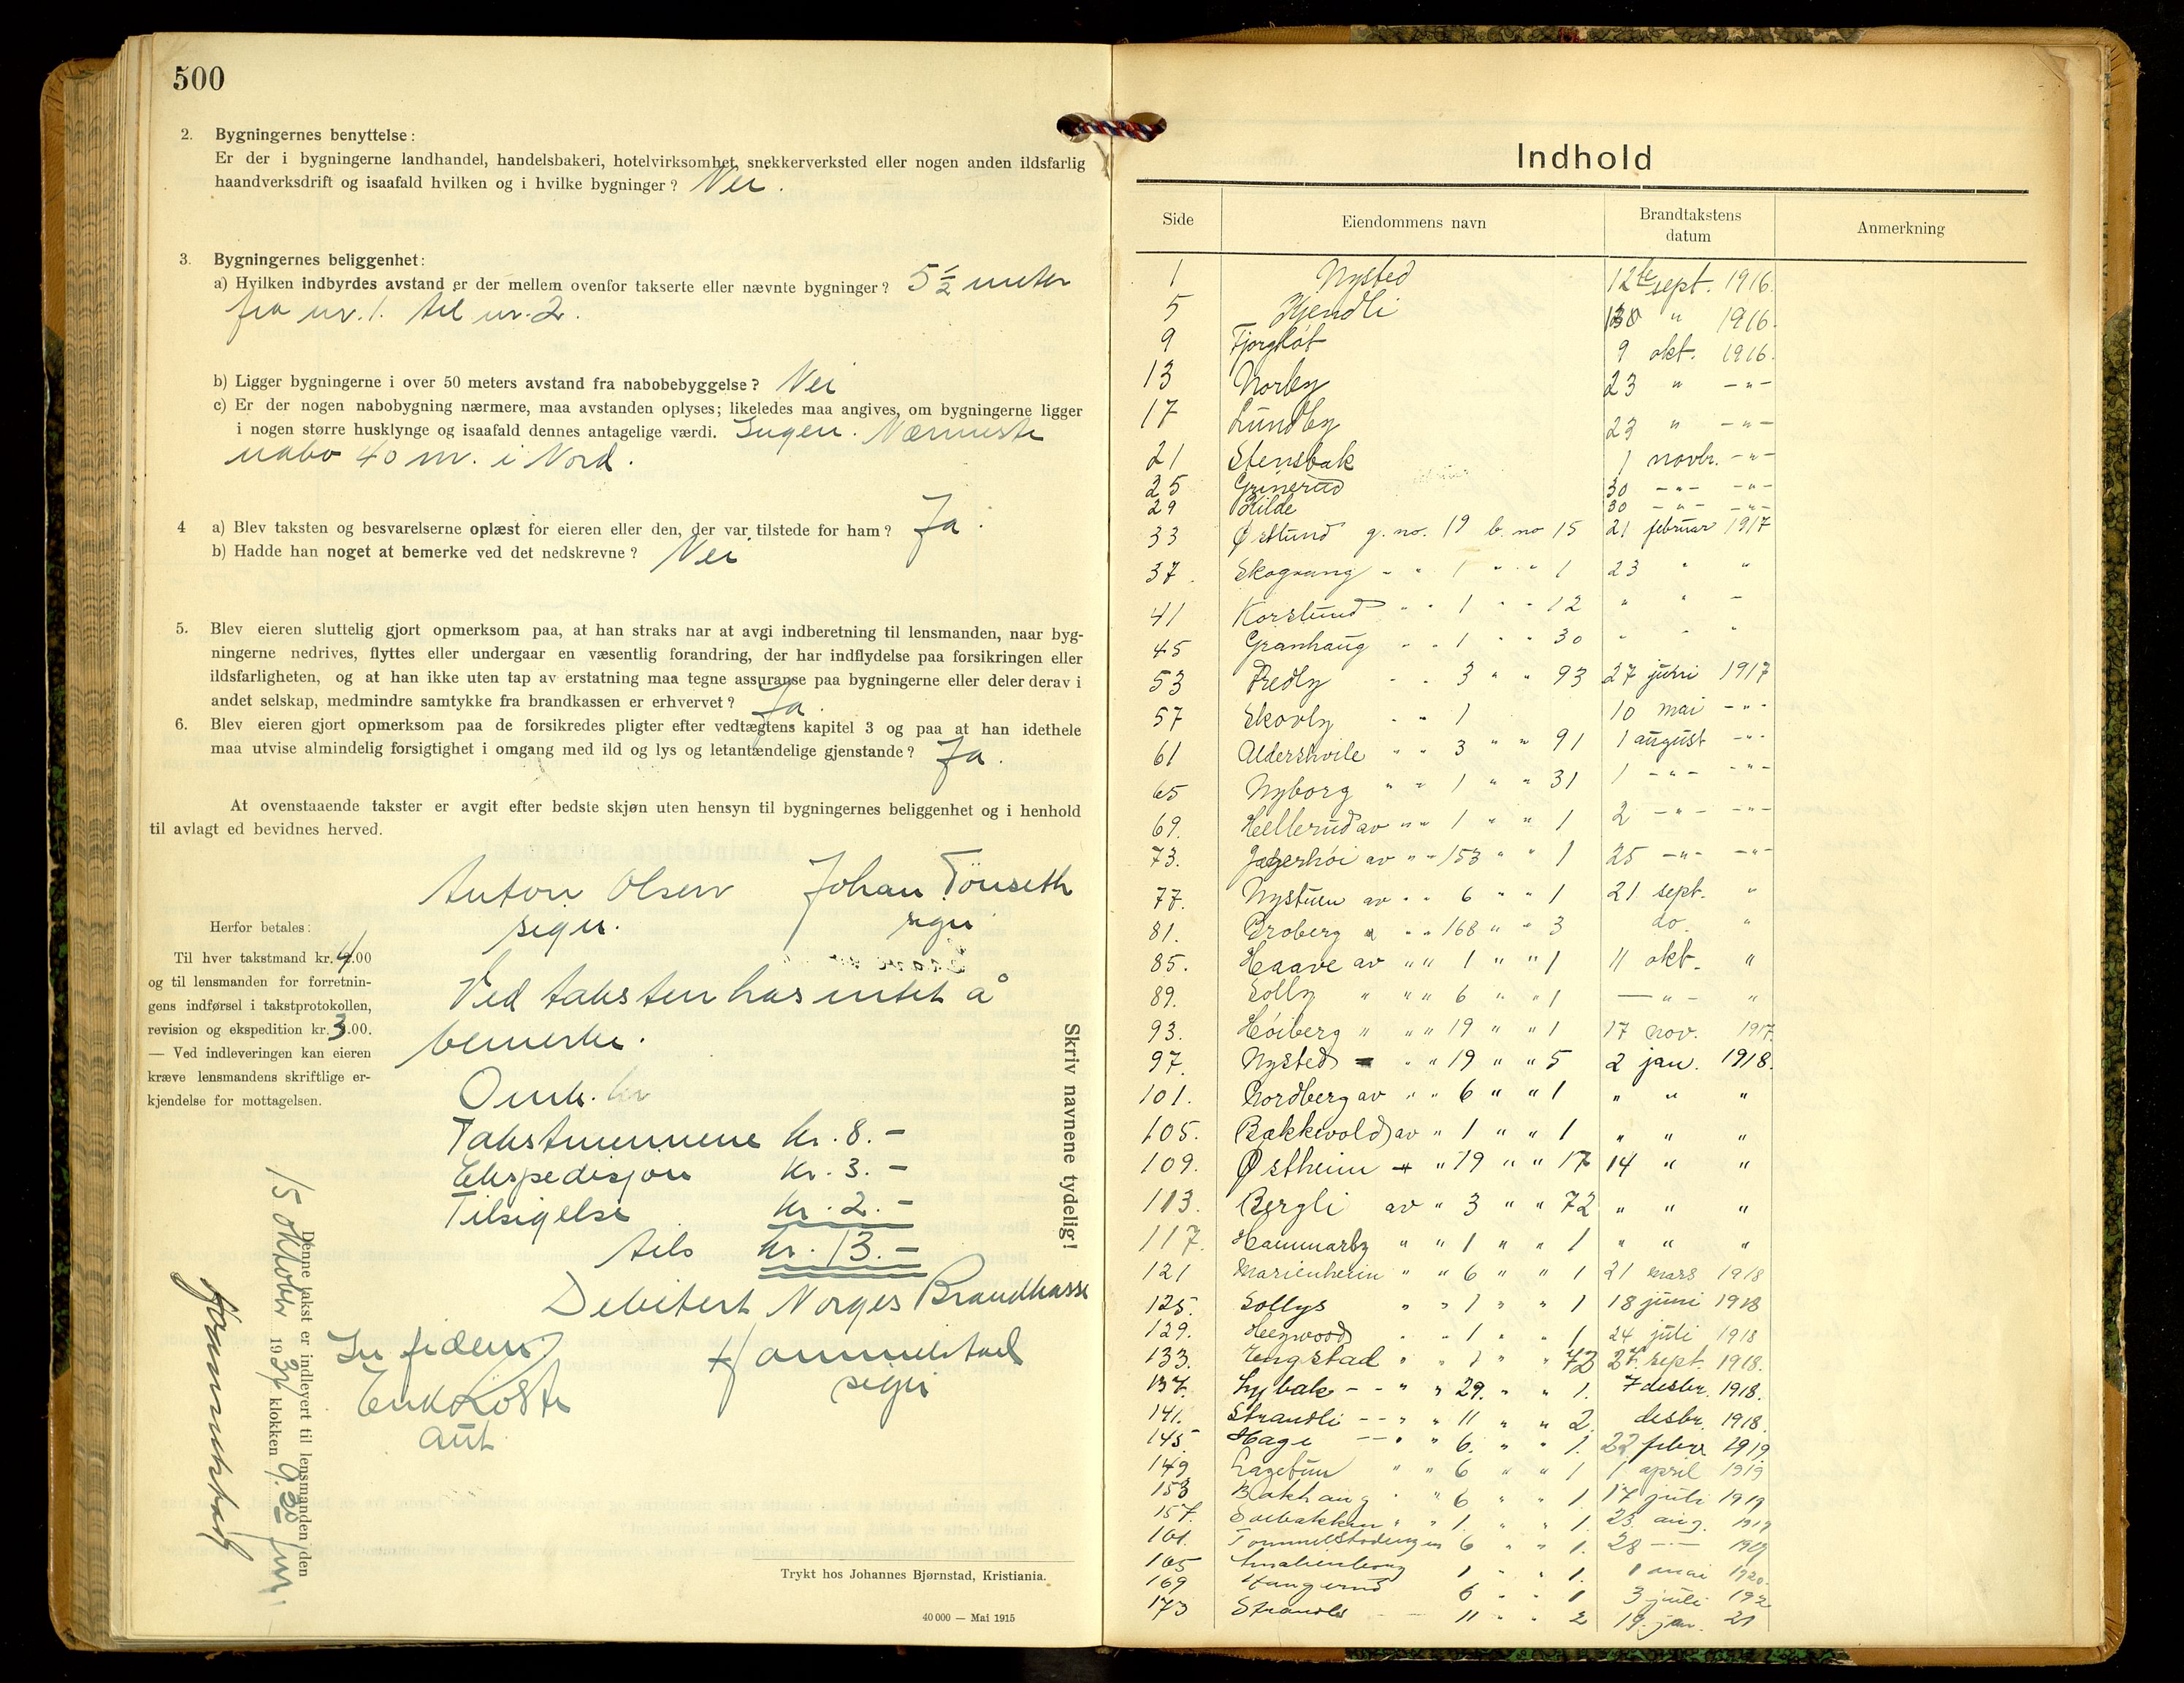 500
2. Bygningernes benyttelse:
Er der i bygningerne landhandel, handelsbakeri, hotelvirksomhet, snekkerverksted eller nogen anden ildsfarlig
haandverksdrift og isaafald hvilken og i hvilke bygninger? Nei.
3. Bygningernes beliggenhet:
a) Hvilken indbyrdes avstand er der mellem ovenfor takserte eller nævnte bygninger? 5 ½ meter
fra nr. 1. til nr. 2.
b) Ligger bygningerne i over 50 meters avstand fra nabobebyggelse? Nei
c) Er der nogen nabobygning nærmere, maa avstanden oplyses; likeledes maa angives, om bygningerne ligger
i nogen større husklynge og isaafald dennes antagelige værdi. Ingen. Nærmeste
nabo 40 m. i Nord.
4 a) Blev taksten og besvarelserne oplæst for eieren eller den, der var tilstede for ham? Ja.
b) Hadde han noget at bemerke ved det nedskrevne? Nei
5. Blev eieren sluttelig gjort opmerksom paa, at han straks nar at avgi indberetning til lensmanden, naar byg-
ningerne nedrives, flyttes eller undergaar en væsentlig forandring, der har indflydelse paa forsikringen eller
ildsfarligheten, og at han ikke uten tap av erstatning maa tegne assuranse paa bygningerne eller deler derav i
andet selskap, medmindre samtykke fra brandkassen er erhvervet? Ja.
6. Blev eieren gjort opmerksom paa de forsikredes pligter efter vedtægtens kapitel 3 og paa at han idethele
maa utvise almindelig forsigtighet i omgang med ild og lys og letantændelige gjenstande? Ja.
At ovenstaaende takster er avgit efter bedste skjøn uten hensyn til bygningernes beliggenhet og i henhold
til avlagt ed bevidnes herved.
Anton Olsen Johan Tönseth
sign. sign
Herfor betales:
Til hver takstmand kr. 4.00
og til lensmanden for forretnin-
gens indførsel i takstprotokollen,
revision og ekspedition kr. 3.00.
— Ved indleveringen kan eieren
kræve lensmandens skriftlige er-
kjendelse for mottagelsen.
Ved taksten has intet å
bemerke.
Omk. kr
Takstmennene kr. 8.-
Ekspedisjon kr. 3.-
Tilsigelse kr. 2.-
tils kr. 13.-
Debitert Norges Brandkasse
In fidem
aut
sign
Skriv navnene tydelig!
Denne takst er indlevert til lensmanden den
15 oktober 19 klokken 9.30 fm
Trykt hos Johannes Bjørnstad, Kristiania.
40 000 — Mai 1915
Indhold
Side Eiendommens navn Brandtakstens datum Anmerkning
1 Nysted 12te sept. 1916.
5 Hjendli " 1916.
9 9 okt. 1916.
13 Norby 23 " -"-
17 Lundby 23 " -"-
21 Stensbak 1 novbr. -"-
25 Grinerud 30 -"- -"-
29 Kilde 30 -"- -"-
33 Østlund g. no. 19 b. no 15 21 februar 1917
37. Skogvang " " 1 " " 1 23 " "
41 Korslund " " 1 " " 12 " " "
45 Granhaug " " 1 " " 30 " " "
53 Fredly " " 3 " " 93 27 juni 1917
57 Skovly " " 1 10 mai -"-
61 Aldershvile " " 3 " " 91 1 august -"-
65 Nyborg " " 1 " " 31 1 -"- -"-
69. Hellerud av " " 1 " " 1 2 -"- -"-
73. Jægerhöi av " " 153 " " 1 25 -"- -"-
77. Nystuen av " " 6 " " 1 21 sept. "
81. Broberg " " 168 " " 3 do. "
85. Haave av " " 1 " " 1 11 okt. "
89. Solly " " " 6 " " 1 -"- "
93. Høiberg " " " 19 " " 1 17 nov. 1917.
97. Nysted " " 19 " " 5 2 jan. 1918.
101. Nordberg av " " 6 " " 1 " " "
105. Bakkevold av " 1 " " 1 " " "
109. Østheim " 19 " " 17 14 " "
113. Bergli av " 3 " " 72 " " "
117. Hammarby " " 1 " " 1 " " "
121 Marienheim " " 6 " " 1 21 mars 1918
125. Sollys " " 1 " " 1 18 juni 1918
129. Heywood " " 1 " " 1 24 juli 1918
133. Engstad " " 1 " " 72 27. sept. 1918.
137. Lybak - - " " 29. " " 1. 7 desbr. 1918.
141. Strandli - - " " 11 " " 2. desbr. 1918.
145. Hage - - " " 6. " " 1. 22 febr. 1919.
149 " " 6 " " 1 1 april 1919
153 Bakhaug " " 6 " " 1. 17 juli 1919
157. Solbakken " " 1. " " 1. 23. aug. 1919
161. 6 " " 1. 28 -"- 1919
165 1 " " 1. 1 mai 1920.
169 Haugerud 6 " " 1 3 juli 192
173 Strandli 11 " " 2 19. jan. 21